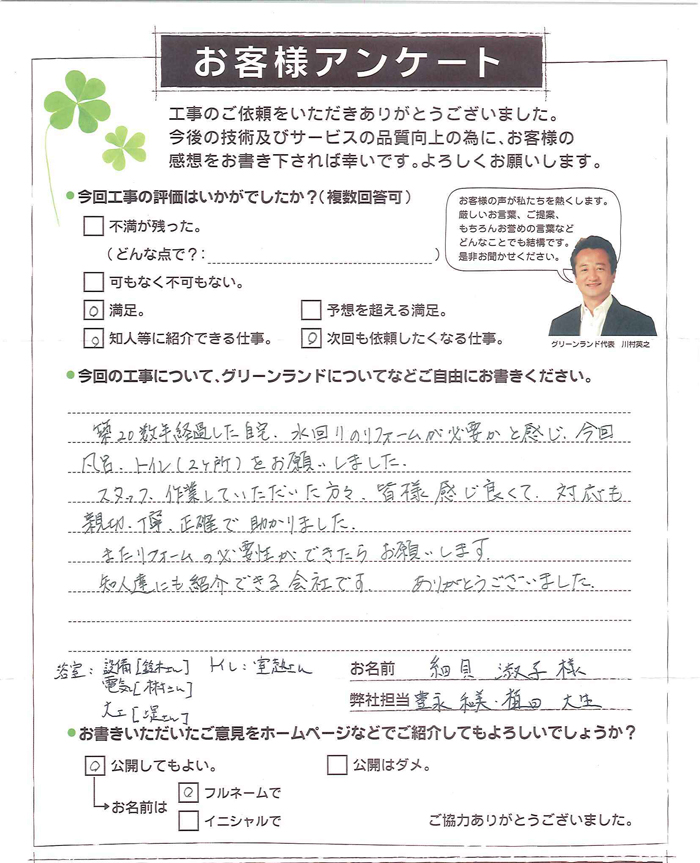 お客様アンケート
工事のご依頼をいただきありがとうございました。
今後の技術及びサービスの品質向上の為に、お客様の
感想をお書き下されば幸いです。よろしくお願いします。
●今回工事の評価はいかがでしたか？（複数回答可）
不満が残った。
（どんな点で？：　）
可もなく不可もない。
○ 満足。
予想を超える満足。
○ 知人等に紹介できる仕事。
○ 次回も依頼したくなる仕事。
お客様の声が私たちを熱くします。
厳しいお言葉、ご提案、
もちろんお誉めの言葉など
どんなことでも結構です。
是非お聞かせください。
グリーンランド代表　川村英之
●今回の工事について、グリーンランドについてなどご自由にお書きください。
築20数年経過した自宅、水回りのリフォームが必要かと感じ、今回
風呂、トイレ（2ヶ所）をお願いしました。
スタッフ、作業していただいた方々、皆様感じ良くて、対応も
親切、丁寧、正確で助かりました。
またリフォームの必要性ができたらお願いします。
知人達にも紹介できる会社です。　ありがとうございました。
浴室：設備［鈴木さん］　トイレ：室越さん
電気［林さん］
大工［堤さん］
お名前　細貝　淑子様
弊社担当　豊永　和美・植田　大生
●お書きいただいたご意見をホームページなどでご紹介してもよろしいでしょうか？
○ 公開してもよい。
公開はダメ。
お名前は
○ フルネームで
イニシャルで
ご協力ありがとうございました。